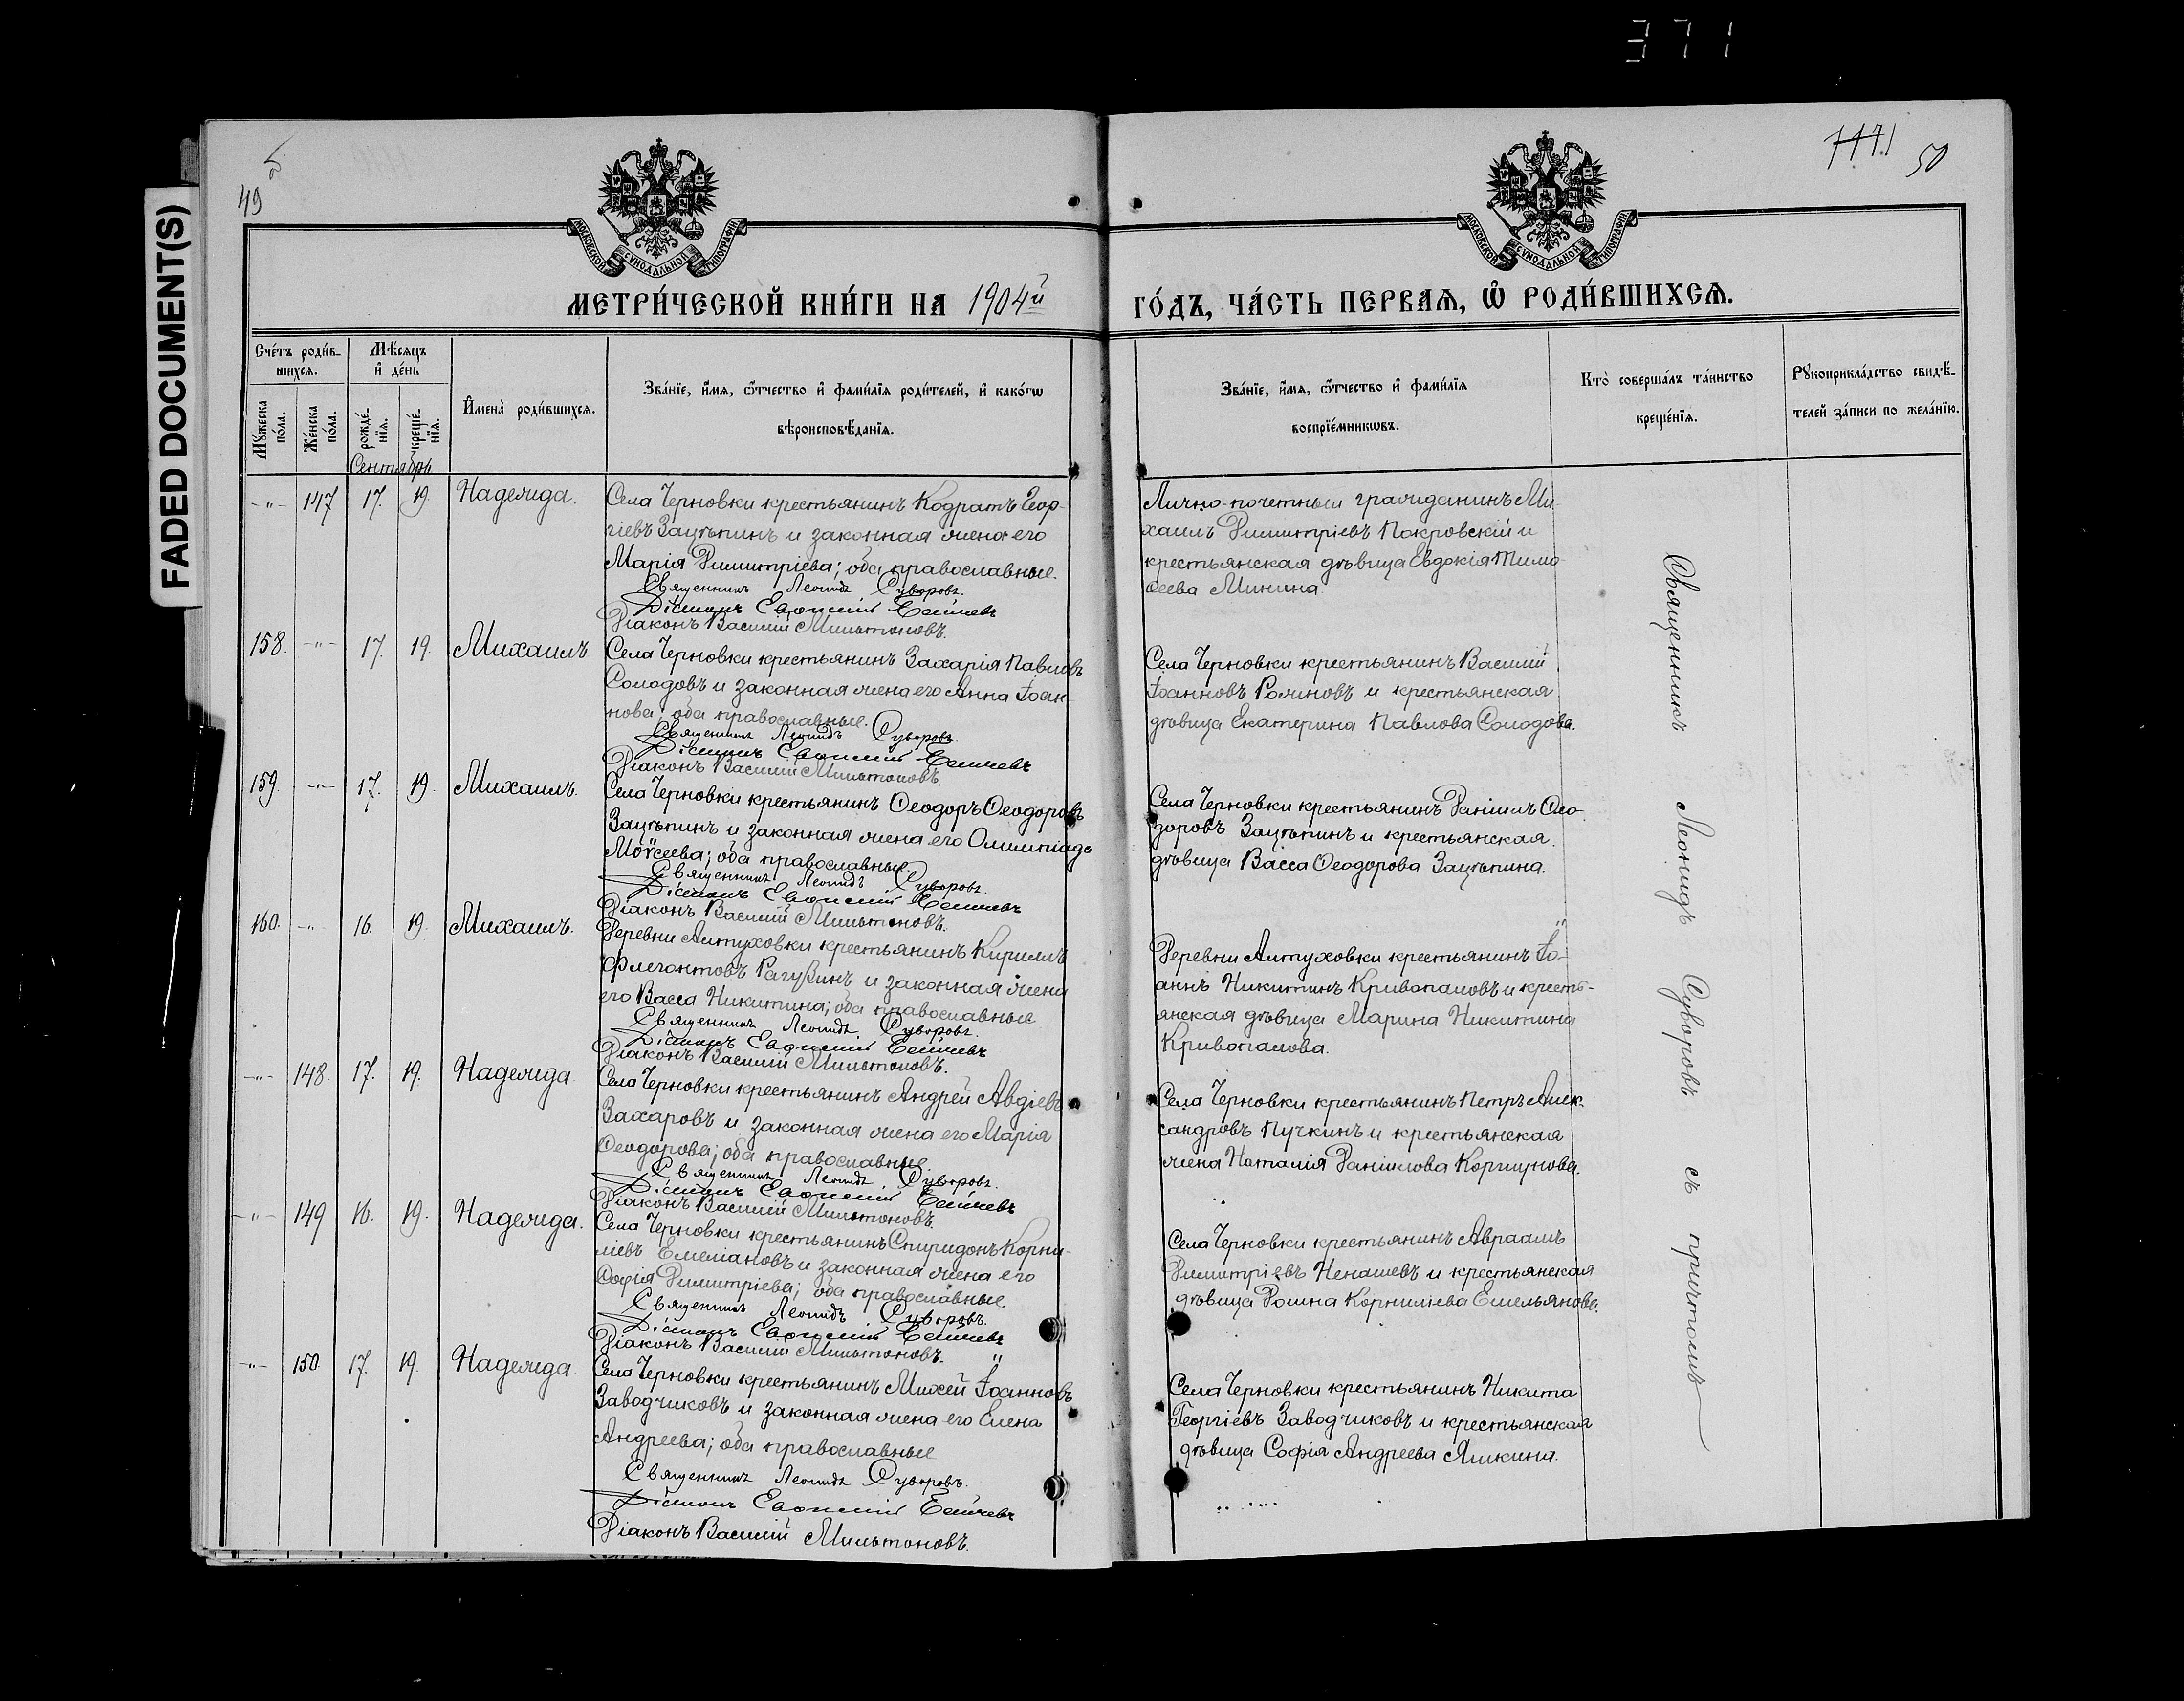 371
FADED DOCUMENT(S)
49
1171
50
МОСКОВСКОЙ СѴНОДАЛЬНОЙ ТИПОГРАФІИ
МОСКОВСКОЙ СѴНОДАЛЬНОЙ ТИПОГРАФІИ
МЕТРИ́ЧЕСКОЙ КНИ́ГИ НА 1904й ГО́ДЪ, ЧА́СТЬ ПЕРВАѦ, Ѡ РОДИ́ВШИХСѦ.
Сче́тъ роди́в-
шихся.
Му́жеска по́ла.
Же́нска по́ла.
Мѣсяцъ
и де́нь
рожде́-
нія.
креще́-
нія.
Имена̀ роди́вшихся.
Зва́ніе, и́мя, ѻ́тчество и фами́лія роди́телей, и како́гѡ
вѣроисповѣ́данія.
Зва́ніе, и́мя, ѻ́тчество и фами́лія
воспріе́мникѡвъ.
Кто̀ соверша́лъ та́инство
креще́нія.
Рꙋкоприкла́дство свидѣ́-
телей за́писи по жела́нію.
Сентябрь
-"- 147 17. 19. Надежда.
Села Черновки крестьянинъ Кодратъ Геор-
гіевъ Зацѣпинъ и законная жена его
Марія Димитріева; оба православные.
Священникъ Леонидъ Суворовъ.
Діаконъ Василій Мильтоновъ.
Лично-почетный гражданинъ Ми-
хаилъ Димитріевъ Покровскій и
крестьянская дѣвица Евдокія Тимо-
ѳеева Минина.
158. -"- 17. 19. Михаилъ
Села Черновки крестьянинъ Захарія Павловъ
Солодовъ и законная жена его Анна Іоан-
нова; оба православные.
Священникъ Леонидъ Суворовъ.
Діаконъ Василій Мильтоновъ.
Села Черновки крестьянинъ Василій
Іоанновъ Рожновъ и крестьянская
дѣвица Екатерина Павлова Солодова.
159. -"- 17. 19. Михаилъ.
Села Черновки крестьянинъ Ѳеодоръ Ѳеодоровъ
Зацѣпинъ и законная жена его Олимпіада
Моѵсеева; оба православные.
Священникъ Леонидъ Суворовъ.
Діаконъ Василій Мильтоновъ.
Села Черновки крестьянинъ Даніилъ Ѳео-
доровъ Зацѣпинъ и крестьянская
дѣвица Васса Ѳеодорова Зацѣпина.
160. -"- 16. 19. Михаилъ.
Деревни Алтуховки крестьянинъ Кириллъ
Флегонтовъ Рагузинъ и законная жена
его Васса Никитина; оба православные
Священникъ Леонидъ Суворовъ.
Діаконъ Василій Мильтоновъ.
Деревни Алтуховки крестьянинъ Іо-
аннъ Никитинъ Кривопаловъ и кресть-
янская дѣвица Марина Никитина
Кривопалова.
-"- 148. 17. 19. Надежда
Села Черновки крестьянинъ Андрей Авдіевъ
Захаровъ и законная жена его Марія
Ѳеодорова; оба православные.
Священникъ Леонидъ Суворовъ.
Діаконъ Василій Мильтоновъ.
Села Черновки крестьянинъ Петръ Алек-
сандровъ Пучкинъ и крестьянская
жена Наталія Даніилова Коршунова.
-"- 149 16. 19. Надежда.
Села Черновки крестьянинъ Спиридонъ Корни-
ліевъ Емеліановъ и законная жена его
Софія Димитріева; оба православные.
Священникъ Леонидъ Суворовъ.
Діаконъ Василій Мильтоновъ.
Села Черновки крестьянинъ Авраамъ
Димитріевъ Ненашевъ и крестьянская
дѣвица Домна Корниліева Емельянова.
-"- 150. 17. 19. Надежда.
Села Черновки крестьянинъ Михей Іоанновъ
Заводчиковъ и законная жена его Елена
Андреева; оба православные
Священникъ Леонидъ Суворовъ.
Діаконъ Василій Мильтоновъ.
Села Черновки крестьянинъ Никита
Георгіевъ Заводчиковъ и крестьянская
дѣвица Софія Андреева Яшкина.
Священникъ Леонидъ Суворовъ съ причтомъ